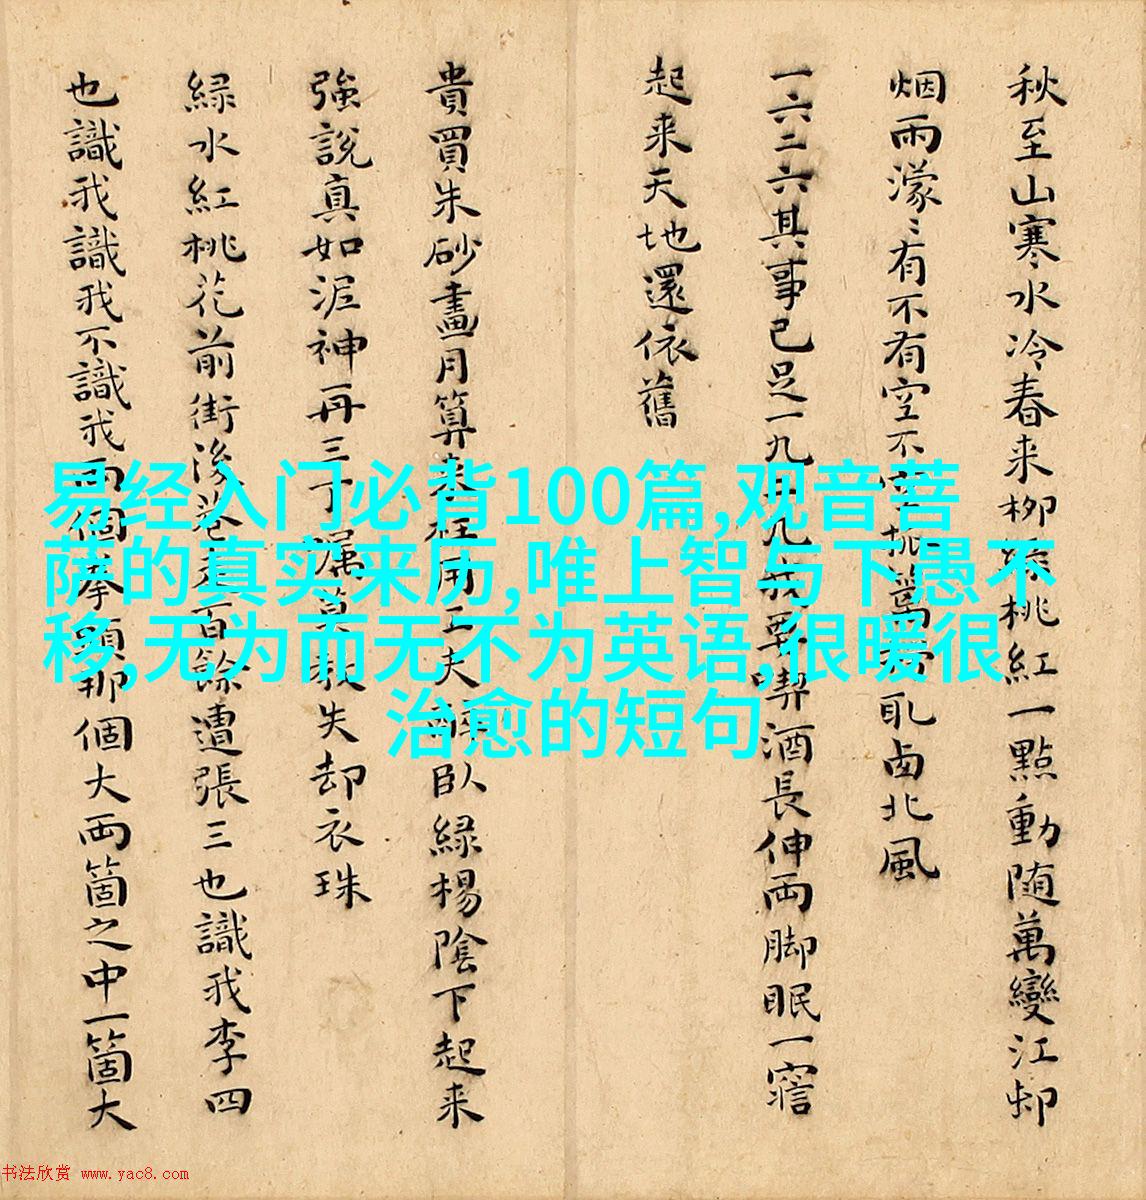 秋至山寒水冷春来柳綠桃紅一點動随萬變江邨
烟雨濛〻有不有空不空笊篱撈取西北風
一六二六其事已足一九二九我要喫酒長伸兩脚眠一寤
起来天地還依舊
貴買朱砂畫月算来枉用工夫醉臥緑楊陰下起来
強説真如泥神再三丁囑莫教失却衣珠
緑水紅桃花前街後巷走百餘遭張三也識我李四
也識我識我不識我兩個拳頭那個大兩箇之中一箇大
易经入门必背100篇,观音菩
萨的真实来历,唯上智与下愚不
移,无为而无不为英语,很暖很
治愈的短句
书法欣赏 www.yac8.com